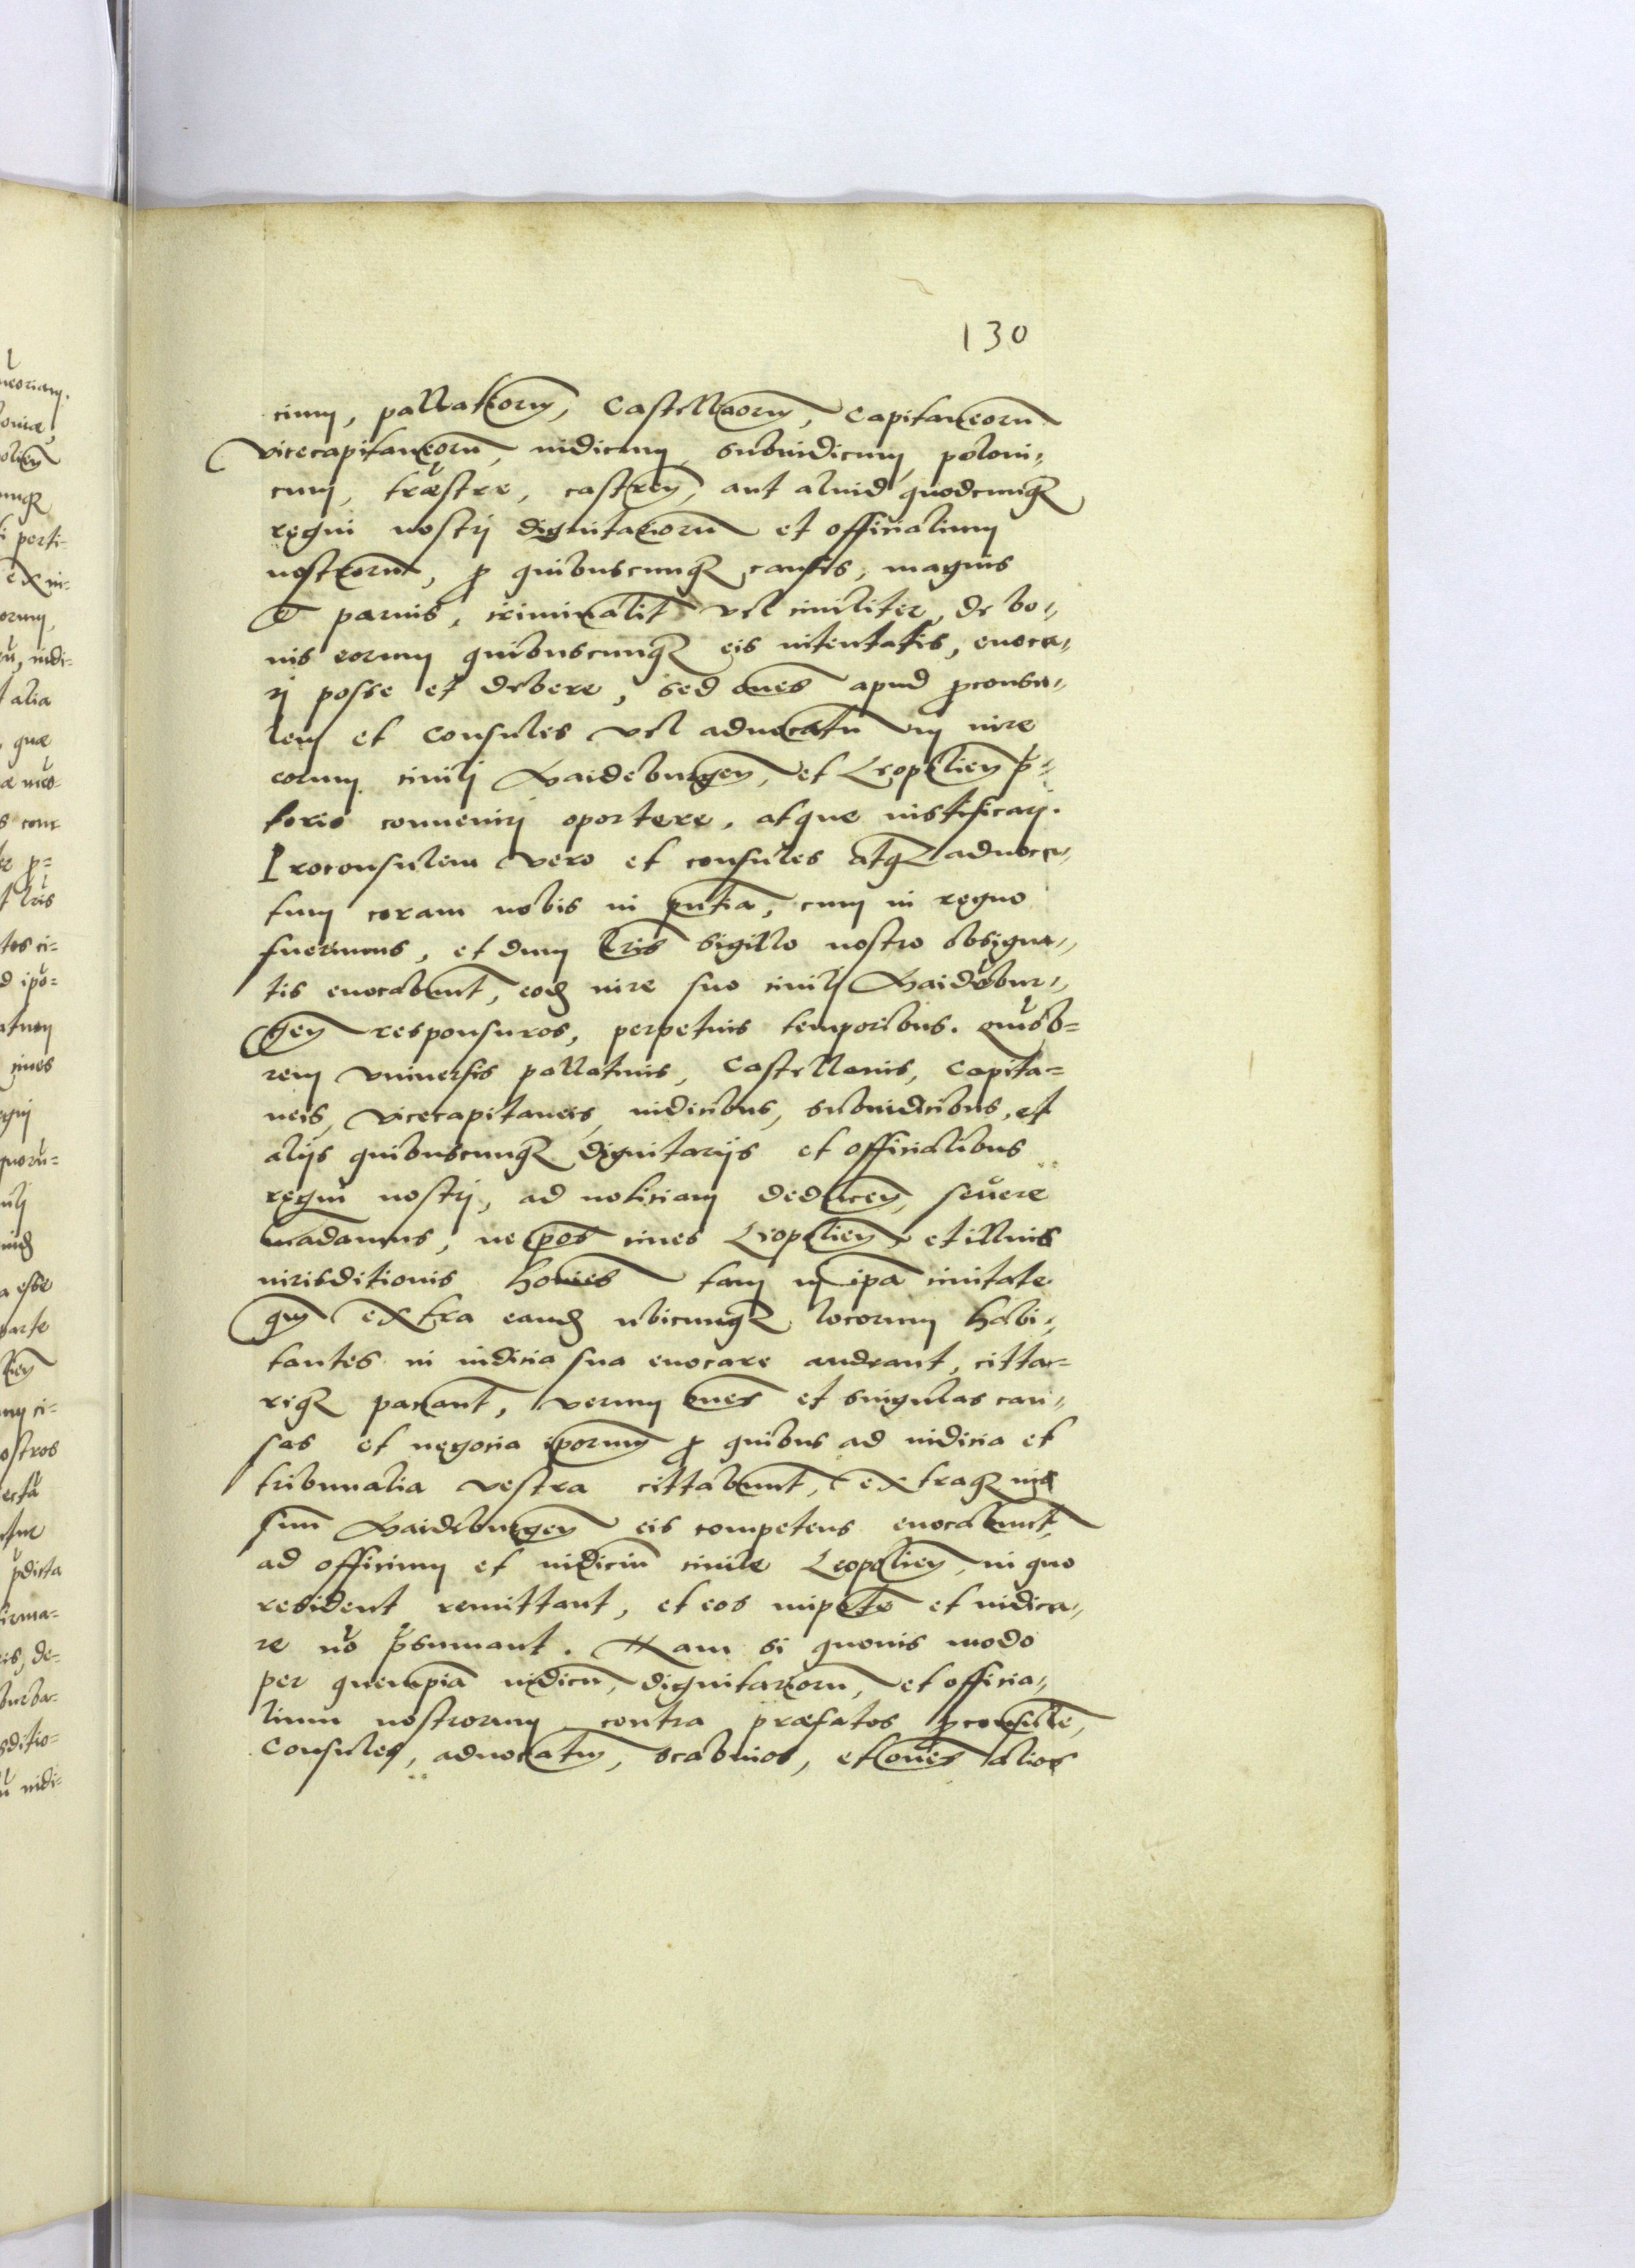 130
cium, pallatiorum, Castellaorum, Capitaneorum
vicecapitaneorum, iudicium, subiudicum poloni„
cum, træstre, castren, aut aliud quodcunq₃
regni nostrj dignitariorum et officialium
nostrorum, p quibuscunq₃ causis, magnis
& paruis, criminalit vel ciuiliter, de bo„
nis eorum quibuscunq₃ eis intentatis, euoca„
rj posse et debere, sed omes apud pconsu„
lem et Consules vel aduocatū in iure
eorum ciuilj Maideburgen, et Leopolien p̄„
torio conuenirj oportere, atque iustificarj.
Proconsulem vero et consules atq₃ aduoca„
tum coram nobis in pntia, cum in regno
fuerimus, et dum lris sigillo nostro obsigna„
tis euocabunt, eod iure suo ciuilj Maidebur„
gen responsuros, perpetuis temporibus. quōb=
rem vniuersis pallatinis, Castellanis, Capita=
neis, vicecapitaneis, iudicibus, subiudicibus, et
alijs quibuscunq₃ dignitarijs et officialibus
regni nostrj, ad noticiam deducen, seuere
mādamus, ne ipos ciues Leopolien et illius
iurisditionis homies tam in ipa ciuitate
qm extra eand ubicunq₃ locorum habi„
tantes in iudicia sua euocare audeant, citta=
riq₃ paciant, verum omes et singulas cau„
sas et negocia iporum p quibus ad iudicia et
tribunalia vestra cittabunt, extraq₃ ius
suum Maideburgen eis competens euocabunt,
ad officium et iudicium ciuile Leopolien, in quo
resident remittant, et eos impete et iudica„
re nō p̄sumant. Nam si quouis modo
per quempiā iudicū, dignitariorum, et officia„
lium nostrorum contra præfatos pconsulē,
Consules, aduocatum, scabinos, et omes alios